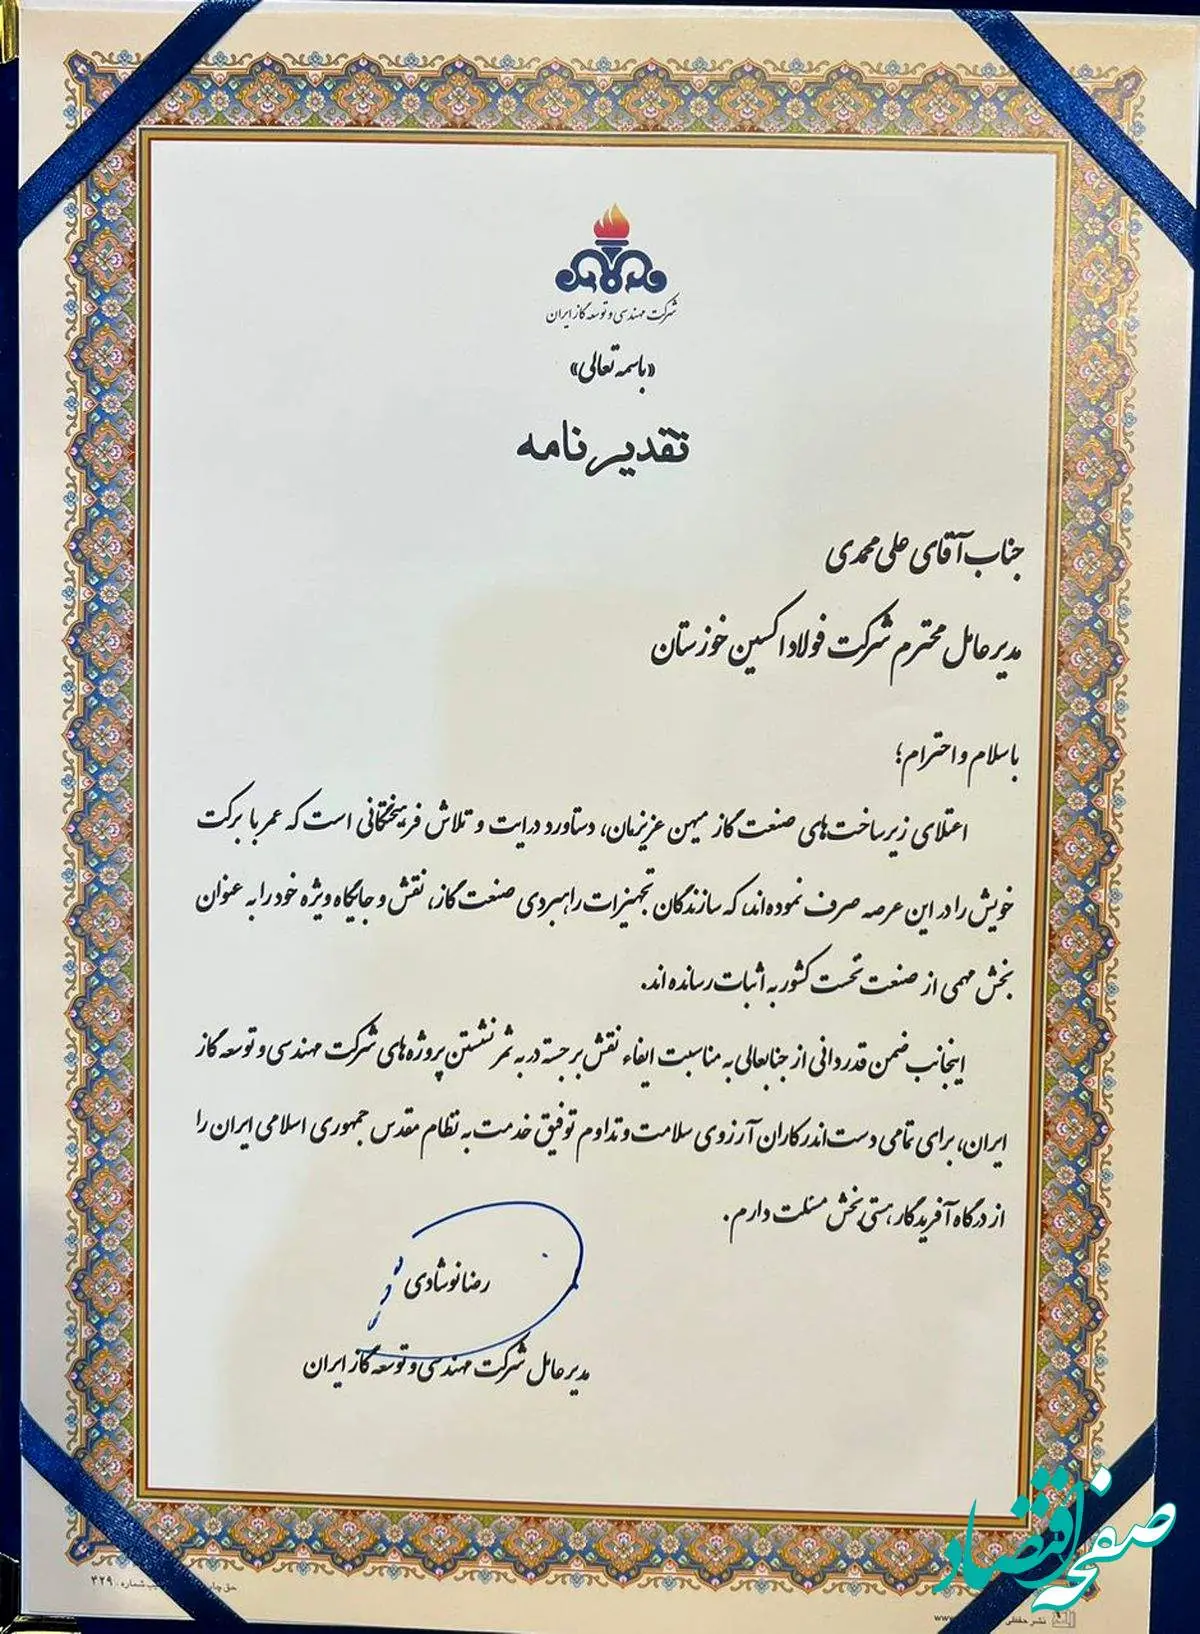 شرکت مهندسی و توسعه گاز ایران
«باسمه تعالی»
تقدیرنامه
جناب آقای علی محمدی
مدیرعامل محترم شرکت فولاد اکسین خوزستان
باسلام و احترام؛
اعتلای زیرساخت‌های صنعت گاز میهن عزیزمان، دستاورد درایت و تلاش فرهیختگانی است که عمر با برکت
خویش را در این عرصه صرف نموده‌اند، که سازندگان تجهیزات راهبردی صنعت گاز، نقش و جایگاه ویژه خود را به عنوان
بخش مهمی از صنعت نحست کشور به اثبات رسانده اند.
اینجانب ضمن قدردانی از جنابعالی به مناسبت ایفاء نقش برجسته در به ثمر نشستن پروژه‌های شرکت مهندسی و توسعه گاز
ایران، برای تمامی دست‌اندرکاران آرزوی سلامت و تداوم توفیق خدمت به نظام مقدس جمهوری اسلامی ایران را
از درگاه آفریدگار هستی‌بخش مسئلت دارم.
رضا نوشادی
مدیرعامل شرکت مهندسی و توسعه گاز ایران
صفحه اقتصاد
حق چاپ
شماره: ۳۲۹
نشر حفظی
www